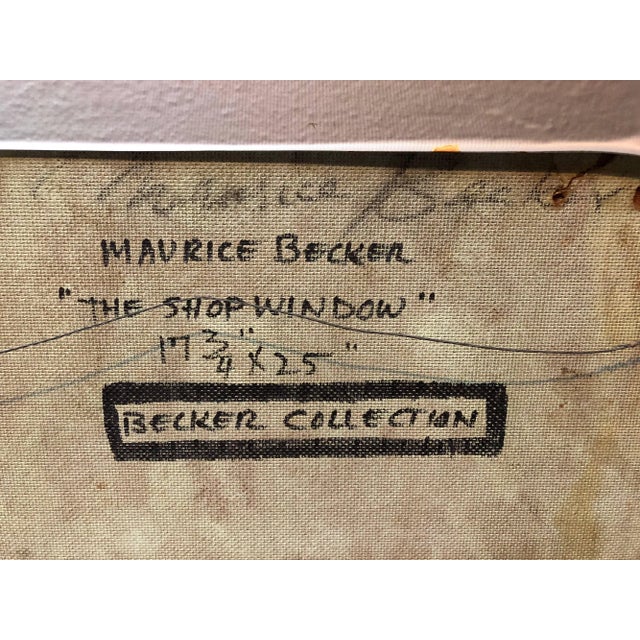 Maurice Becker
MAURICE BECKER
"THE SHOP WINDOW"
17 3/4" X 25"
BECKER COLLECTION